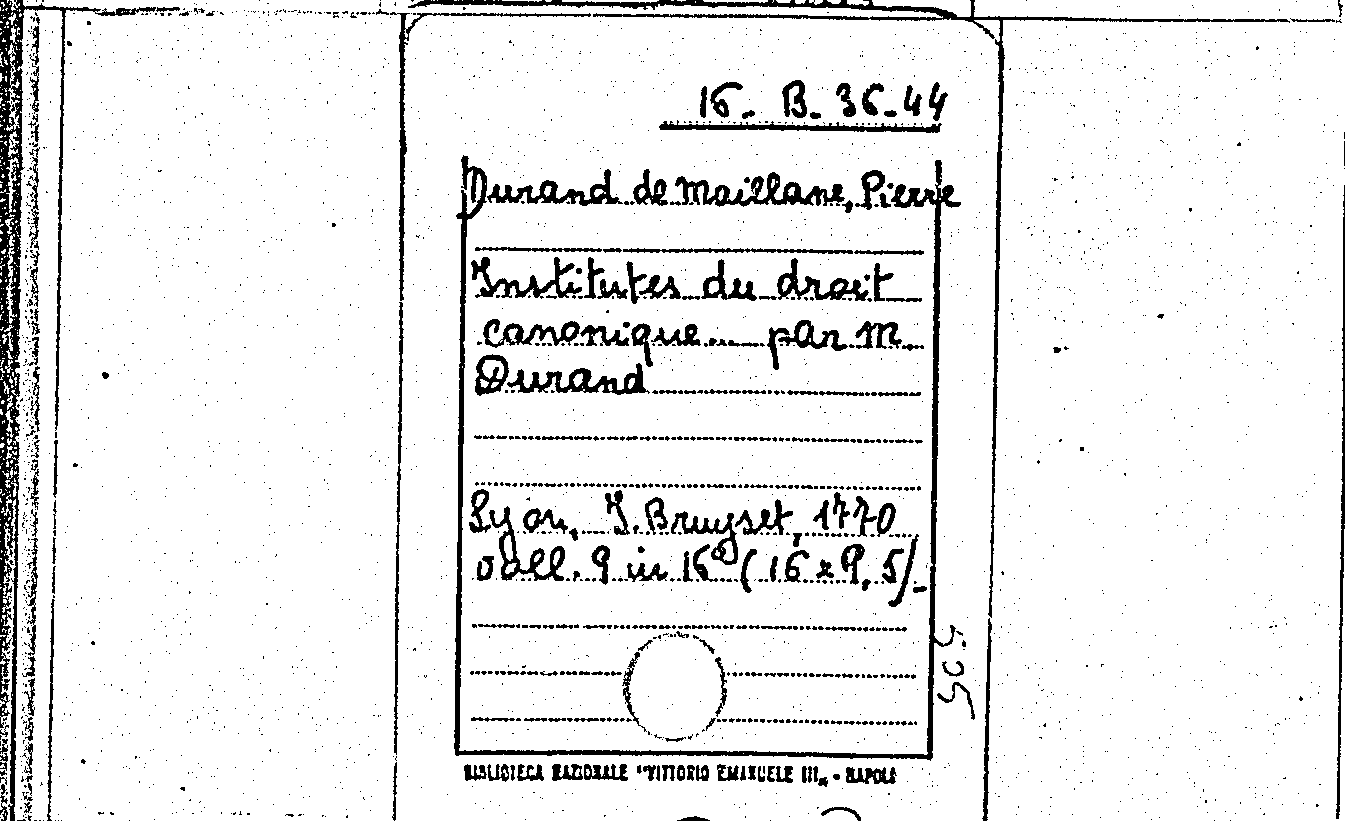 16. B. 36-44
Durand de Maillane, Pierre
Institutes du droit
canonique... par M.
Durand
Lyon, J. Bruyset, 1770
voll. 9 in 16º ( 16 x 9, 5/-
505
BIBLIOTECA NAZIONALE "VITTORIO EMANUELE III„ - NAPOLI